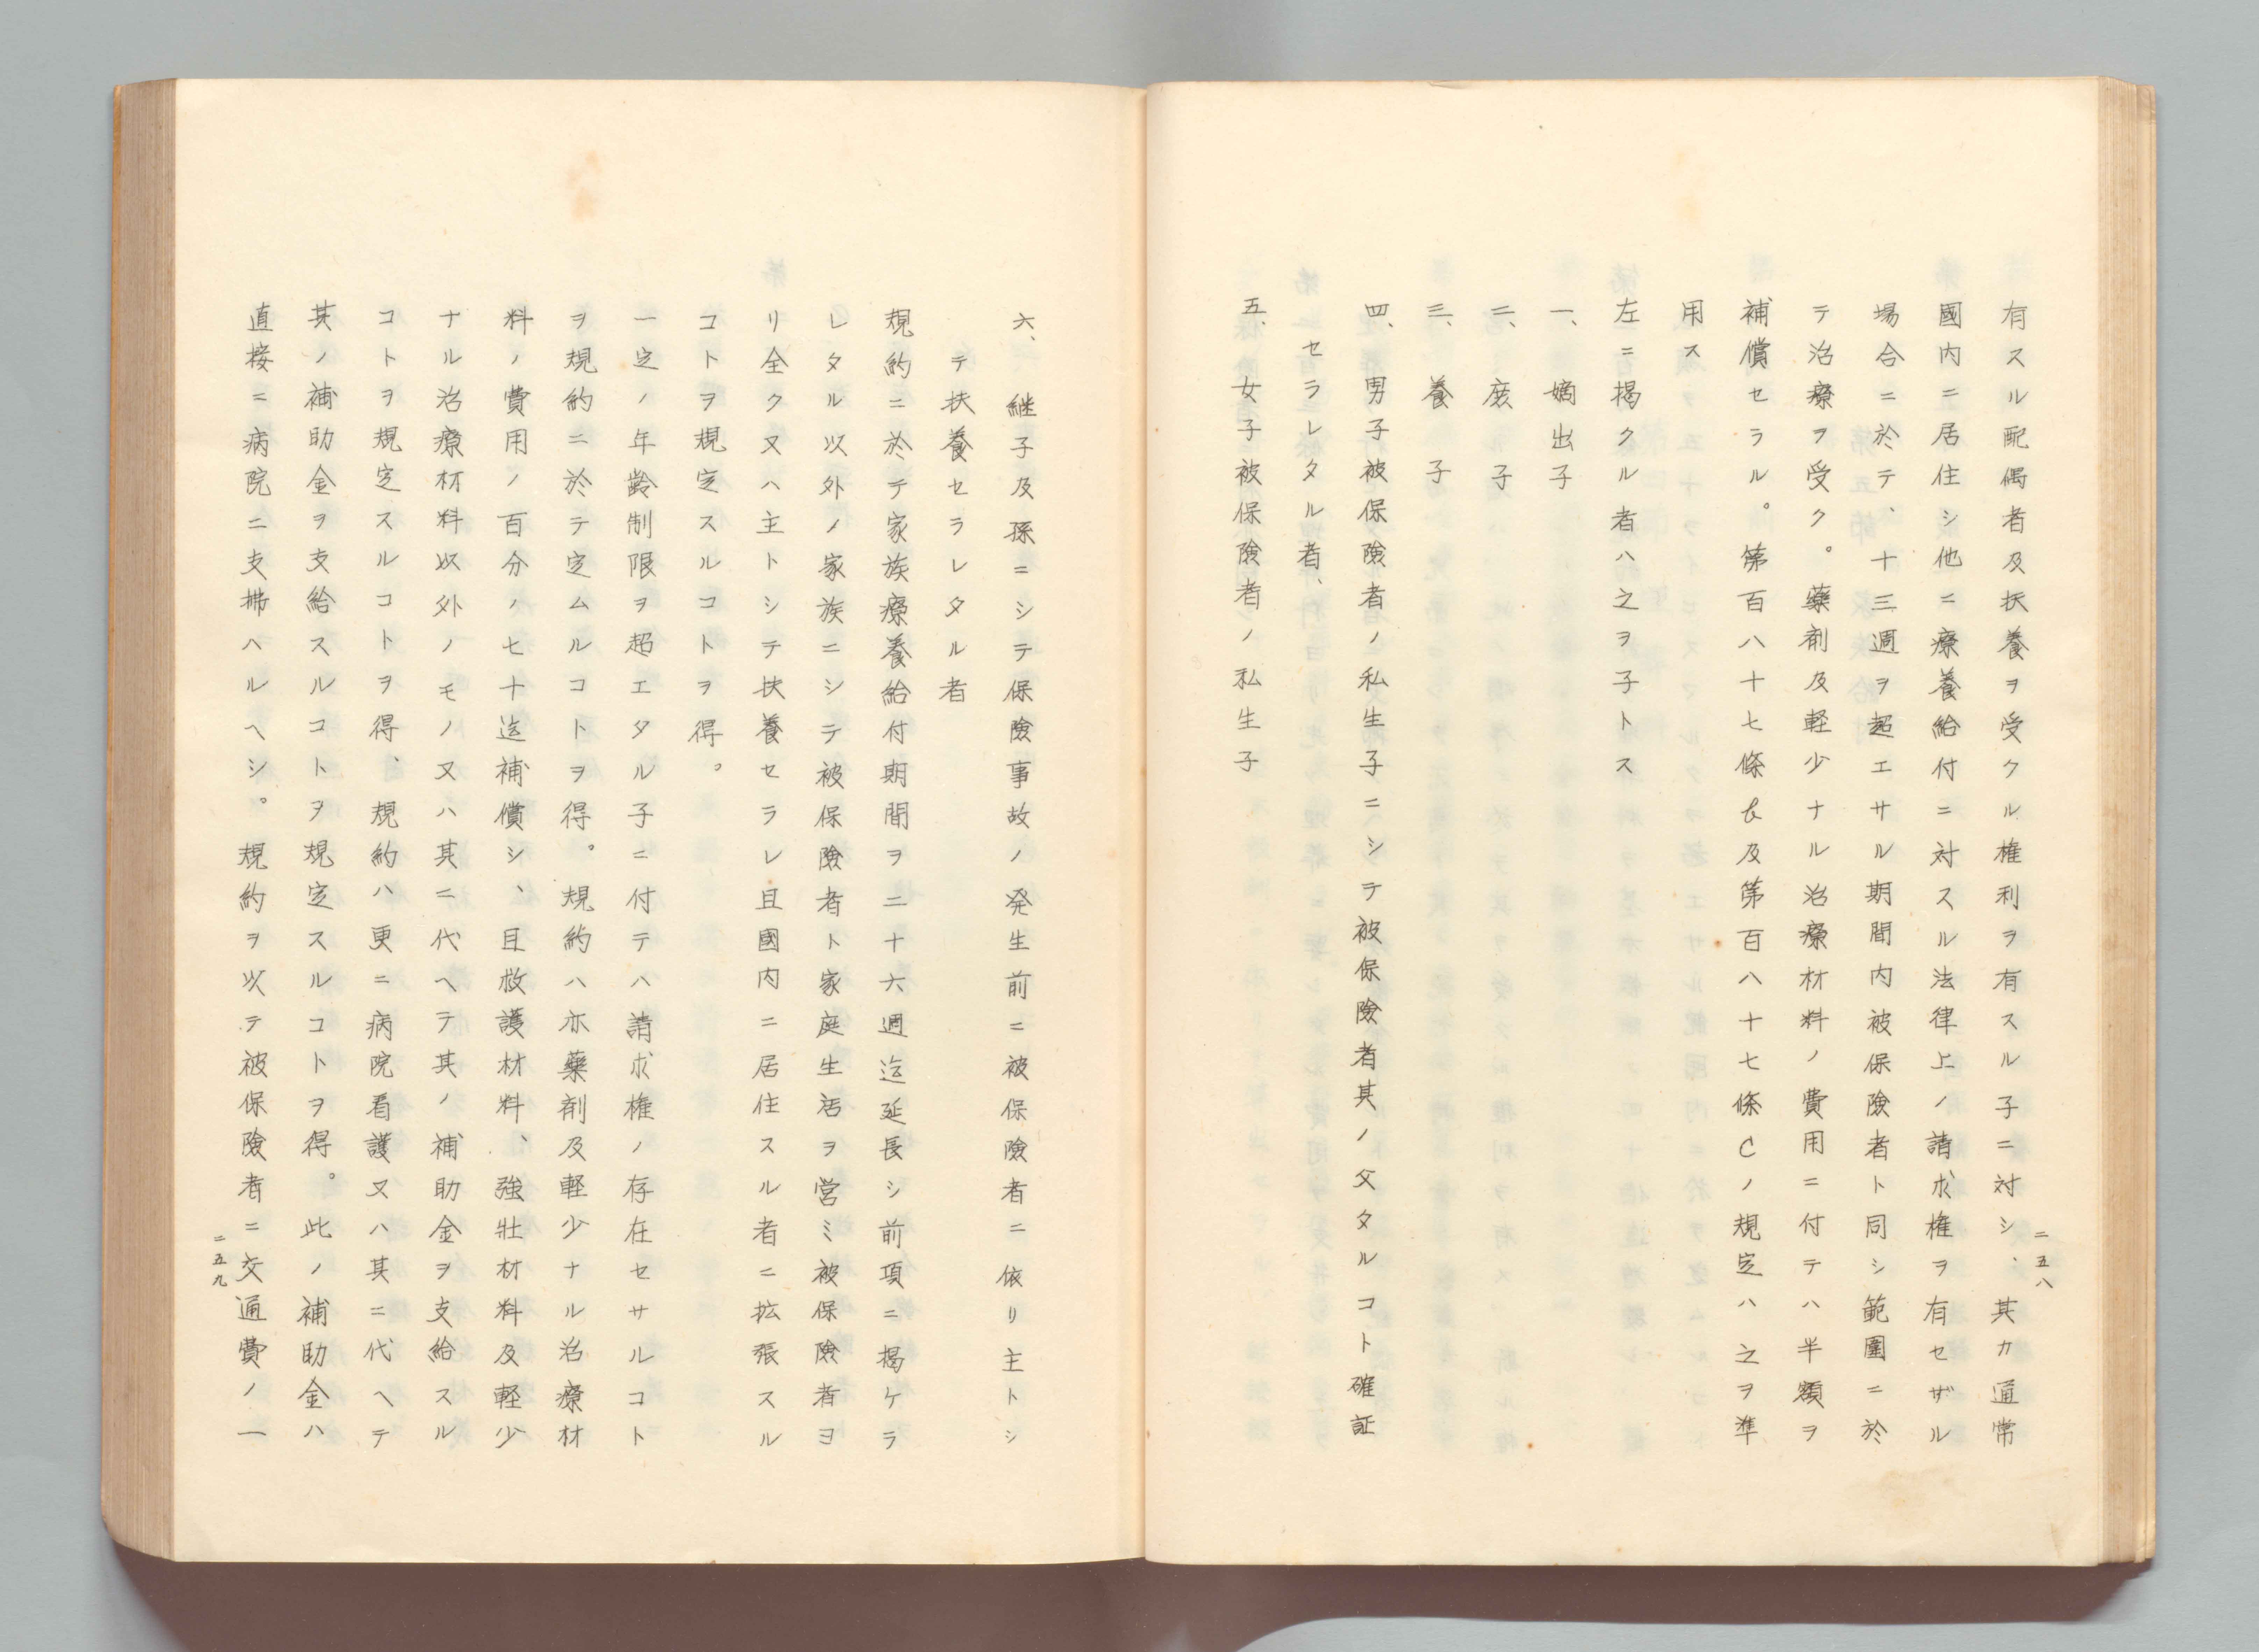 有スル配偶者及扶養ヲ受クル権利ヲ有スル子ニ対シ、其カ通常
國内ニ居住シ他ニ療養給付ニ対スル法律上ノ請求権ヲ有セザル
場合ニ於テ、十三週ヲ超エサル期間内被保険者ト同シ範圍ニ於
テ治療ヲ受ク。藥剤及軽少ナル治療材料ノ費用ニ付テハ半額ヲ
補償セラル。第百八十七條b及第百八十七條cノ規定ハ之ヲ準
用ス
左ニ掲クル者ハ之ヲ子トス
一、嫡出子
二、庶子
三、養子
四、男子被保険者ノ私生子ニシテ被保険者其ノ父タルコト確証
セラレタル者、
五、女子被保険者ノ私生子
二五八
六、継子及孫ニシテ保険事故ノ発生前ニ被保険者ニ依リ主トシ
テ扶養セラレタル者
規約ニ於テ家族療養給付期間ヲ二十六週迄延長シ前項ニ掲ケラ
レタル以外ノ家族ニシテ被保険者ト家庭生活ヲ営ミ被保険者ヨ
リ全ク又ハ主トシテ扶養セラレ且國内ニ居住スル者ニ拡張スル
コトヲ規定スルコトヲ得。
一定ノ年齢制限ヲ超エタル子ニ付テハ請求権ノ存在セサルコト
ヲ規約ニ於テ定ムルコトヲ得。規約ハ亦藥剤及軽少ナル治療材
料ノ費用ノ百分ノ七十迄補償シ、且救護材料、強壮材料及軽少
ナル治療材料以外ノモノ又ハ其ニ代ヘテ其ノ補助金ヲ支給スル
コトヲ規定スルコトヲ得、規約ハ更ニ病院看護又ハ其ニ代ヘテ
其ノ補助金ヲ支給スルコトヲ規定スルコトヲ得。此ノ補助金ハ
直接ニ病院ニ支拂ハルヘシ。規約ヲ以テ被保険者ニ交通費ノ一
二五九